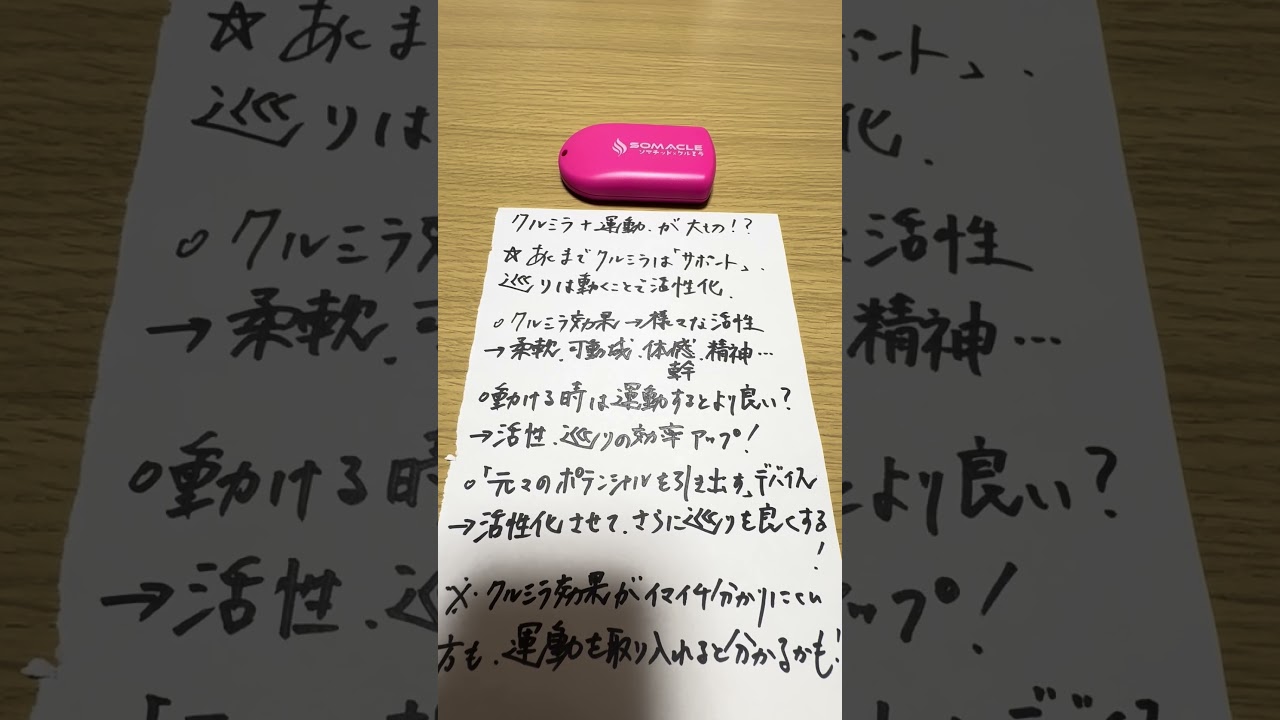 SOMACLE
ソマチッド×クルミラ
クルミラ+運動が大切!?
☆あくまでクルミラは「サポート」、
巡りは動くことで活性化.
○クルミラ効果→様々な活性
→柔軟.可動域.体感.精神…
幹
○動ける時は運動するとより良い?
→活性.巡りの効率アップ!
○「元々のポテンシャルを引き出す」デバイス
→活性化させて、さらに巡りを良くする
!
※クルミラ効果がイマイチ分かりにくい
方も、運動を取り入れると分かるかも!